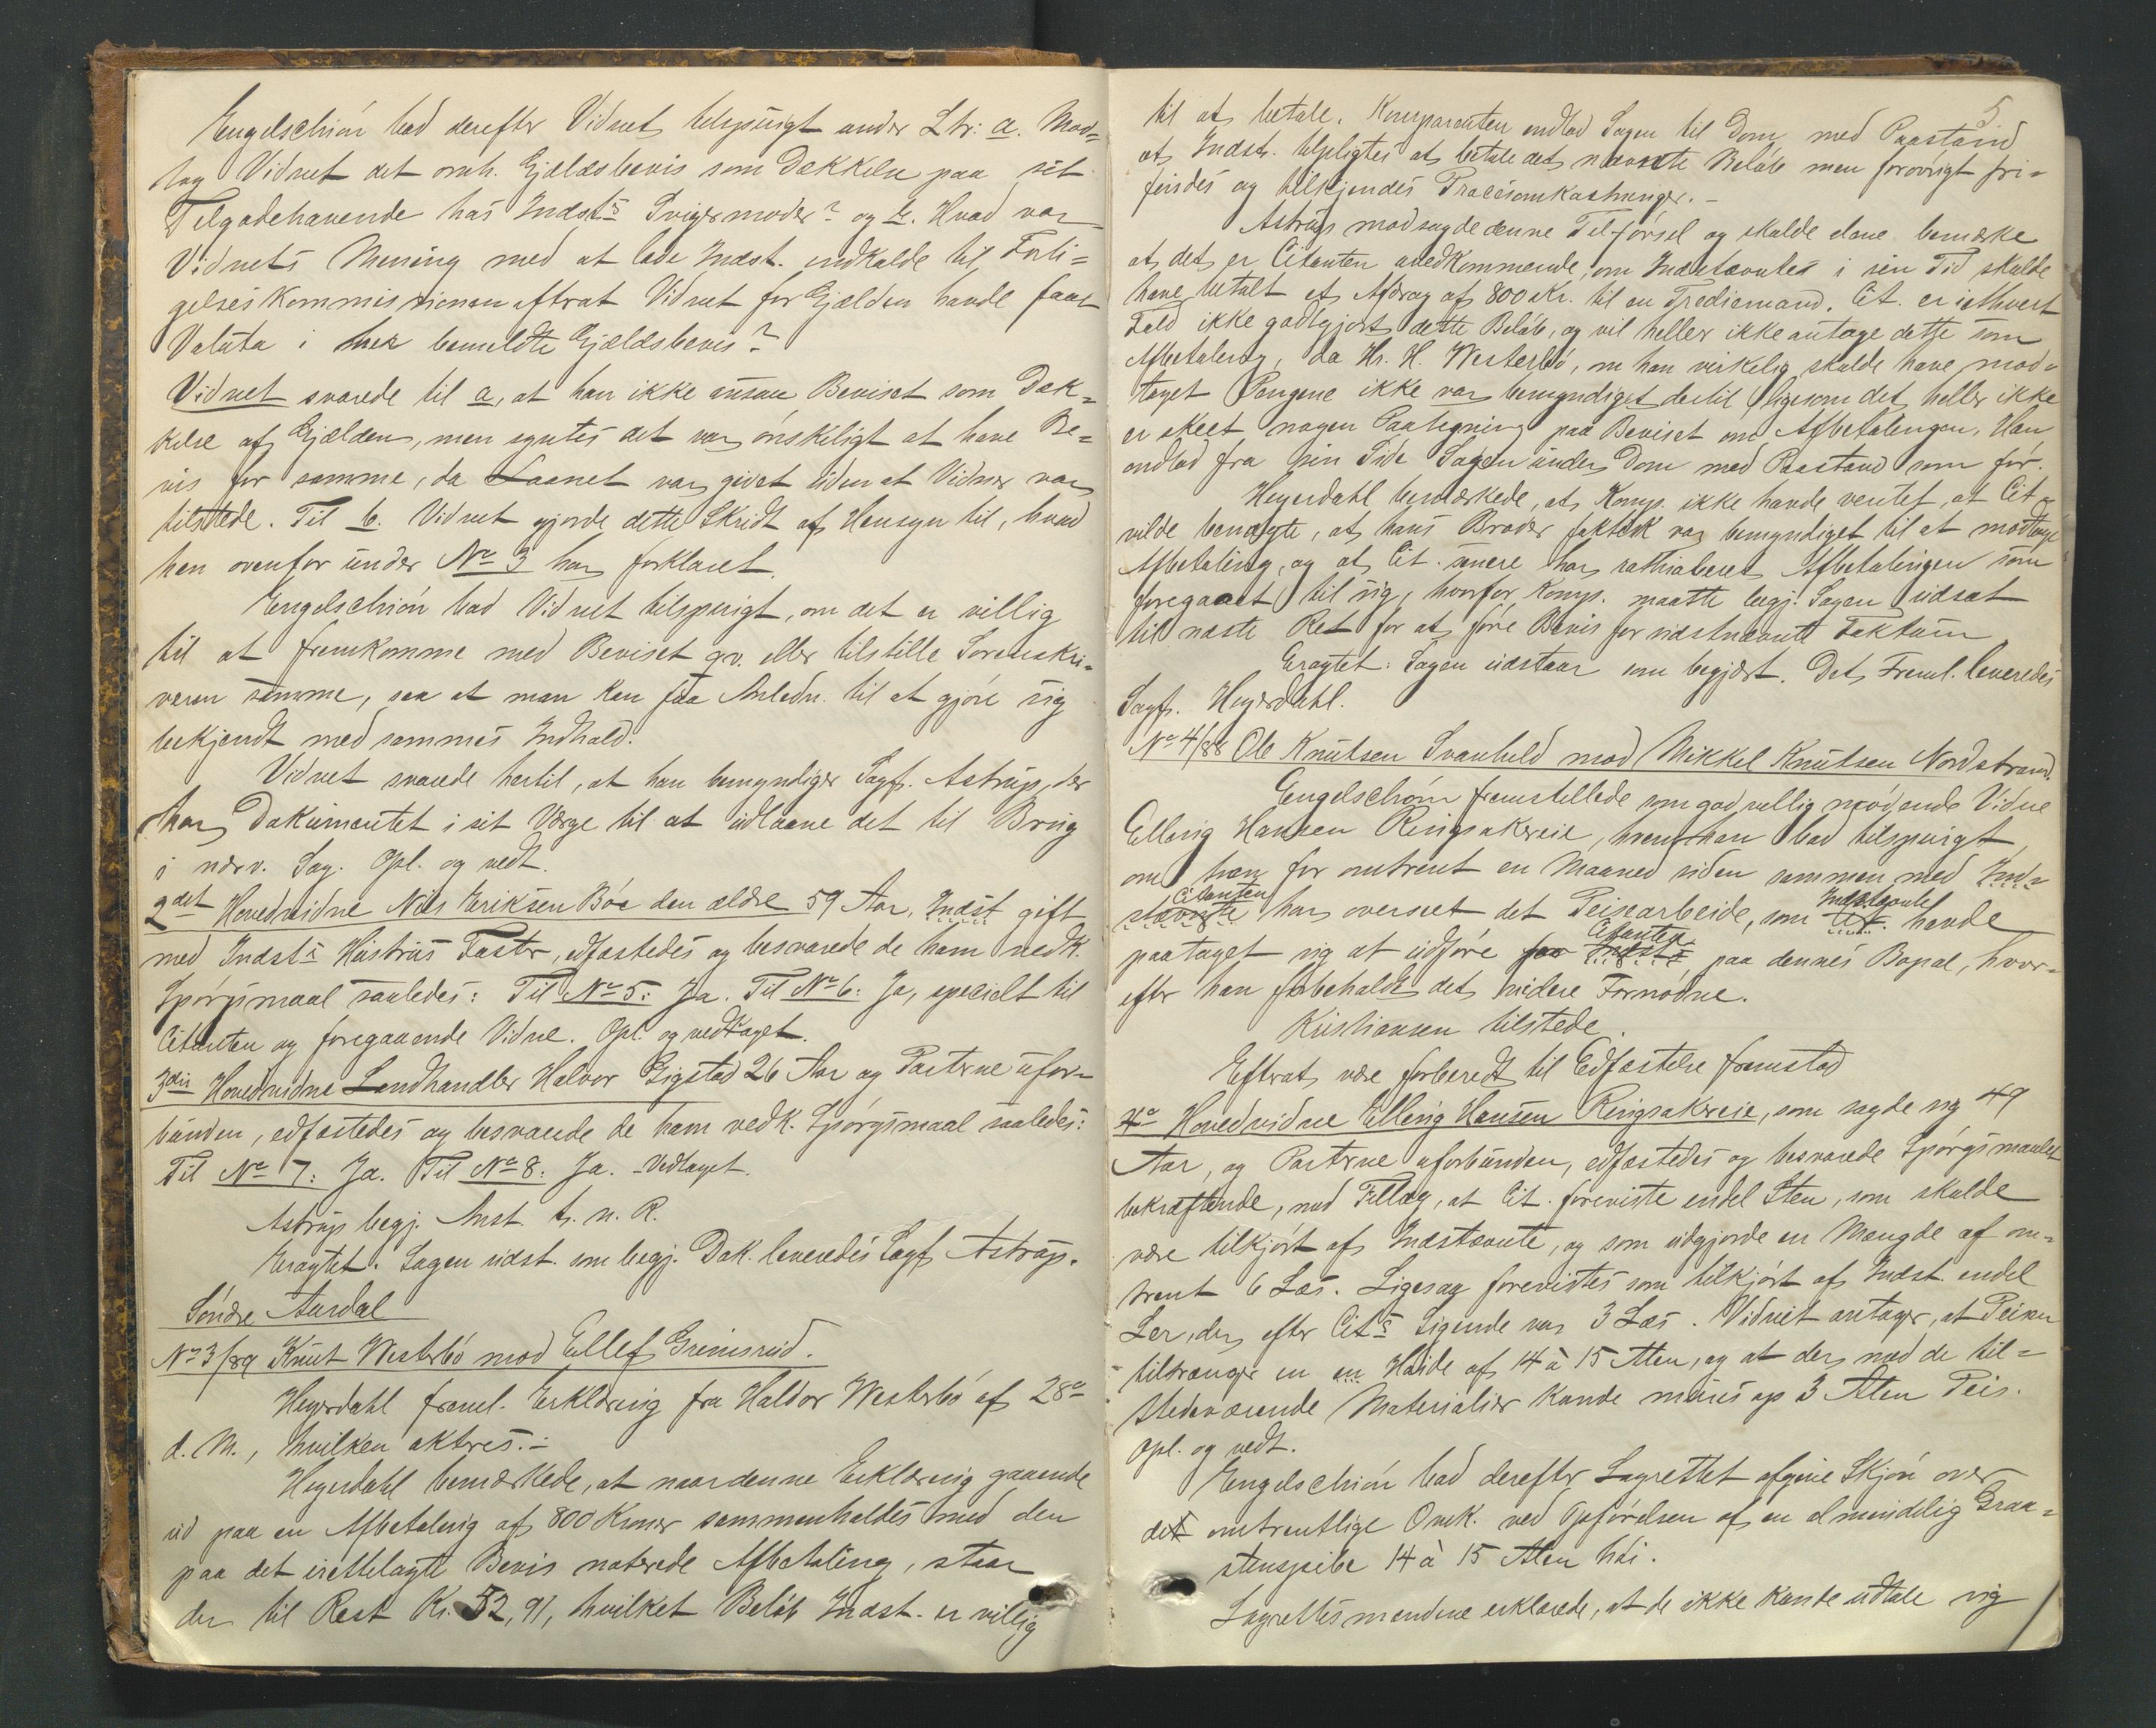 Engelschiön bad derefter Vidnet tilspurgt under Ltr: a. Mod=
tog Vidnet det omh. Gjældsbevis som Dækkelse paa sit
Tilgodehavende hos Indsts Svigermoder? og b. Hvad var
Vidnets Mening med at lade Indst. indkalde til Forli=
gelseskommissionen efterat Vidnet for Gjælden havde faaet
Valuta i her bemeldte Gjældsbevis?
Vidnet svarede til a, at han ikke ansaa Beviset som Dæk=
kelse af Gjælden, men syntes det var ønskeligt at have Be=
vis for samme, da Laanet var givet uden at Vidner var
tilstede. Til b. Vidnet gjorde dette Skridt af Hensyn til, hvad
han ovenfor under No 3 har forklaret.
Engelschiön bad Vidnet tilspurgt, om det er villig
til at fremkomme med Beviset gv. eller tilstille Sorenskri=
veren samme, saa at man kan faa Anledn. til at gjøre sig
bekjendt med sammes Indhold.
Vidnet svarede hertil, at han bemyndiger Sagf. Astrup, der
har Dokumentet i sit Værge til at udlaane det til Brug
i nærv. Sag. Opl. og vedt.
2det Hovedvidne Nils Eriksen Bøe den ældre 59 Aar, Indst gift
med Indsts Hustrus Faster, edfæstedes og besvarede de ham vedk.
Spørgsmaal saaledes: Til No 5: Ja. Til No 6: Ja, specielt til
Citanten og foregaaende Vidne. Opl. og vedtaget.
3die Hovedvidne Landhandler Halvor Gigstad 26 Aar og Parterne ufor=
bunden, edfæstedes og besvarede de ham vedk. Spørgsmaal saaledes:
Til No 7: Ja. Til No 8: Ja. Vedtaget.
Astrup begj. Anst. t. n. R.
Eragtet. Sagen udst. som begj. Dok. leveredes Sagf Astrup.
Søndre Aurdal
No 3/89 Knut Westerbø mod Ellef Grimsrud.
Heyerdahl freml. Erklæring fra Haldor Westerbø af 28de
d. M., hvilken aktres.-
Heyerdahl bemærkede, at naar denne Erklæring gaaende
ud paa en Afbetaling af 800 Kroner sammenholdes med den
paa det irettelagte Bevis noterede Afbetaling, staar
der til Rest Kr. 52,91, hvilket Beløb Indst. er villig
5
til at betale. Komparenten indlod Sagen til Dom med Paastand
at Indst. tilpligtes at betale det nævnte Beløb men forøvrigt fri=
findes og tilkjendes Procesomkostninger.-
Astrup modsagde denne Tilførsel og skulde alene bemærke
at det er Citanten uvedkommende, om Indstævntes i sin Tid skulde
have betalt et Afdrag af 800 Kr. til en Trediemand. Cit. er i ethvert
Fald ikke godtgjort dette Beløb, og vil heller ikke antage dette som
Afbetaling, da Hr. H. Westerbø, om han virkelig skulde have mod=
taget Pengene ikke var bemyndiget dertil ligesom det heller ikke
er skeet nogen Paategning paa Beviset om Afbetalingen. Han
indlod fra sin Side Sagen under Dom med Paastand som før.
Heyerdahl bemærkede, at Komp. ikke havde ventet, at Cit.
vilde benægte, at hans Broder faktisk var bemyndiget til at modtage
Afbetaling, og at Cit. senere har rathiaberet Afbetalingen som
foregaaet til sig, hvorfor Komp. maatte begj. Sagen udsat
til næste Ret for at føre Bevis for sidstnævnte Faktum
Eragtet: Sagen udstaar som begjært. Det Freml. leveredes
Sagf. Heyerdahl.
No 4/88 Ole Knutsen Svanhuld mod Mikkel Knutsen Nordstrand.
Engelschiön fremstillede som godvillig mødende Vidne
Elling Hansen Ringsakereie, hvem han bad tilspurgt
om han for omtrent en Maaned siden sammen med Ind=
Citanten Indstævnte
stævnte har overseet det Peisearbeide, som Cit. havde
Citanten
paataget sig at udføre for Indsts paa dennes Bopæl, hvor=
efter han forbeholdt det videre Fornødne.
Kristiansen tilstede.
Efterat være forberedt til Edfæstelse fremstod
4de Hovedvidne Elling Hansen Ringsakereie, som sagde sig 49
Aar, og Parterne uforbunden, edfæstedes og besvarede Spørgsmaalet
bekræftende, med Tillæg, at Cit. foreviste endel Sten, som skulde
være tilkjørt af Indstævnte, og som udgjorde en Mængde af om=
trent 6 Læs. Ligesaa forevistes som tilkjørt af Indst. endel
Ler, der efter Cits Sigende var 3 Læs. Vidnet antager, at Peisen
tiltrænger en en Høide af 14 à 15 Alen, og at der med de til=
stedeværende Materialier kunde mures op 3 Alen Peis.
Opl. og vedt.
Engelschiön bad derefter Lagrettet afgive Skjøn over
det omtrentlige Omk. ved Opførelsen af en almindelig Graa=
stenspibe 14 à 15 Alen høi.
Lagrettesmændene erklærede, at de ikke kunde udtale sig